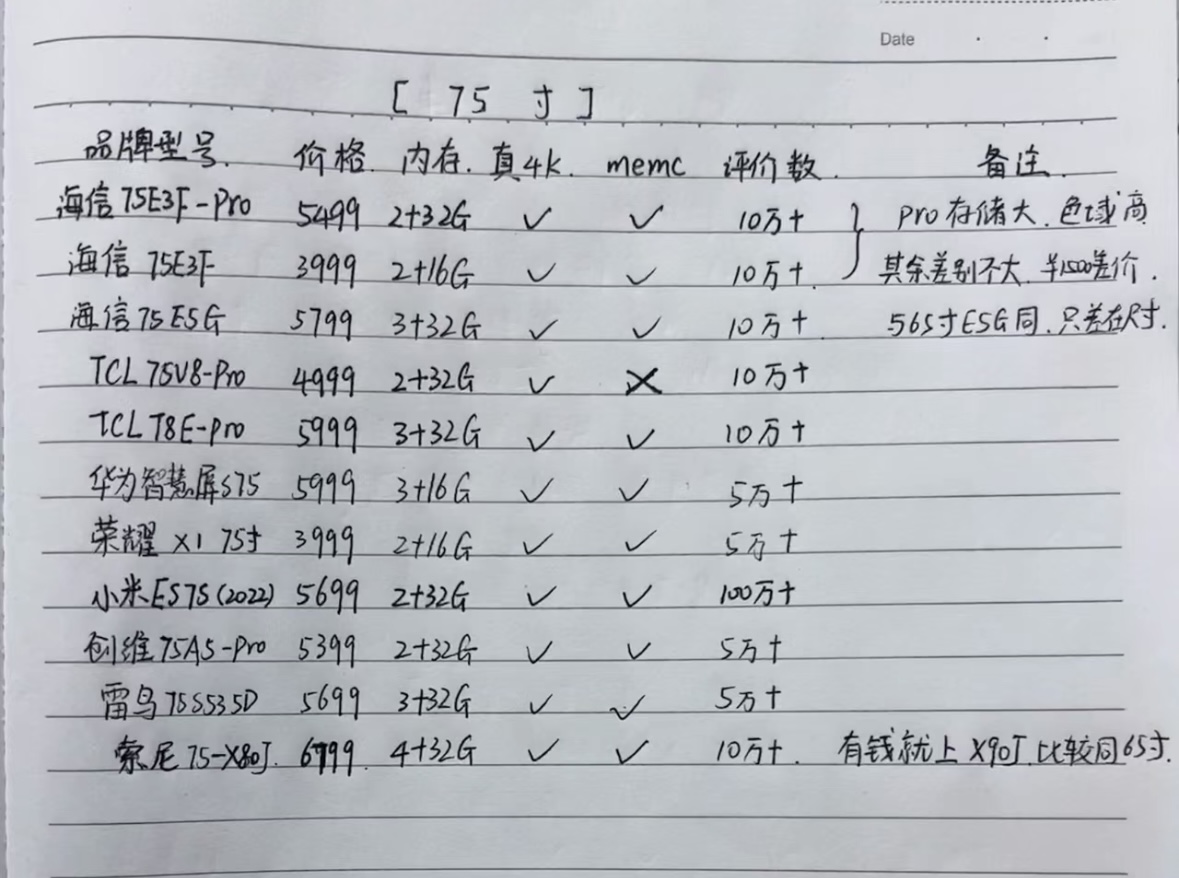 Date
[ 75 寸 ]
品牌型号. 价格. 内存. 真4K. memc 评价数. 备注.
海信75E3F-Pro 5499 2+32G ✓ ✓ 10万+ } Pro存储大.色域高
海信 75E3F 3999 2+16G ✓ ✓ 10万+ 其余差别不大.半1500差价.
海信75E5G 5799 3+32G ✓ ✓ 10万+ 与65寸E5G同.只差在尺寸.
TCL 75V8-Pro 4999 2+32G ✓ × 10万+
TCL T8E-pro 5999 3+32G ✓ ✓ 10万+
华为智慧屏S75 5999 3+16G ✓ ✓ 5万+
荣耀 X1 75寸 3999 2+16G ✓ ✓ 5万+
小米ES75(2022) 5699 2+32G ✓ ✓ 100万+
创维75A5-Pro 5399 2+32G ✓ ✓ 5万+
雷鸟75S535D 5699 3+32G ✓ ✓ 5万+
索尼75-X80J. 6799. 4+32G ✓ ✓ 10万+. 有钱就上X90J.比较同65寸.